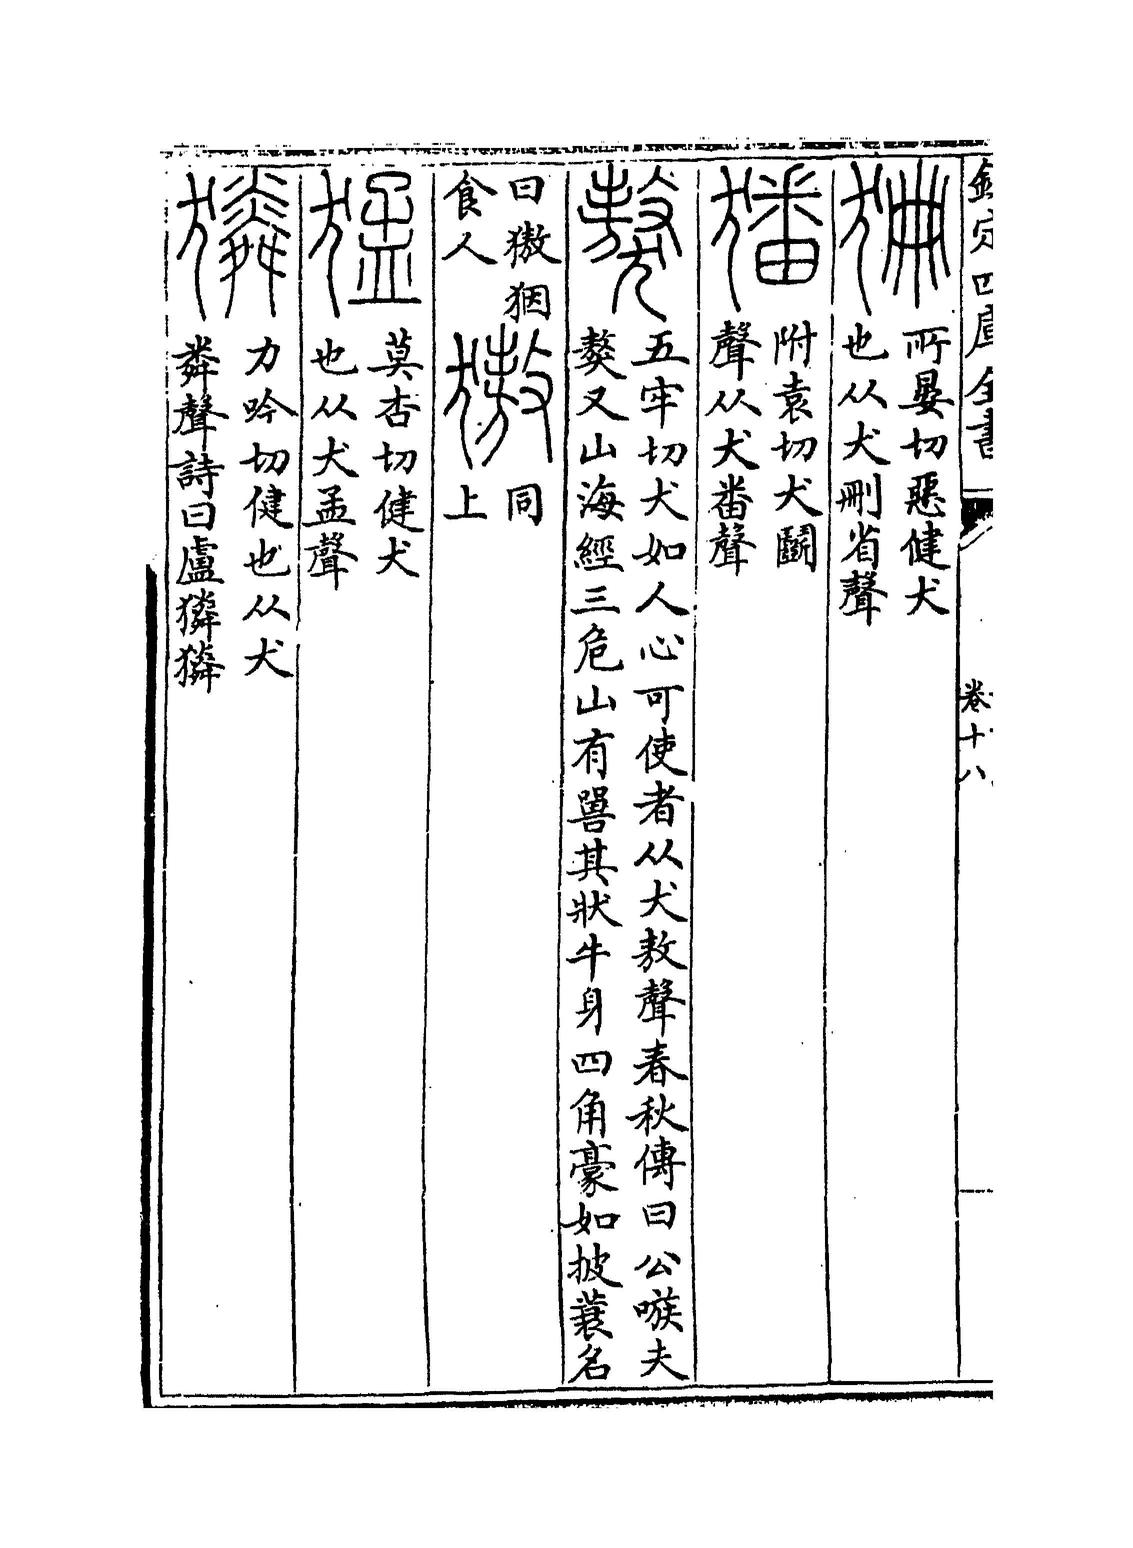 欽定四庫全書
卷十八
狦
所晏切惡健犬
也从犬刪省聲
附袁切犬鬭
聲从犬番聲
獒
五牢切犬如人心可使者从犬敖聲春秋傳曰公嗾夫
獒又山海經三危山有嘼其狀牛身四角豪如披蓑名
曰獓㹶
食人
獓
同
上
猛
莫杏切健犬
也从犬孟聲
獜
力吟切健也从犬
粦聲詩曰盧獜獜